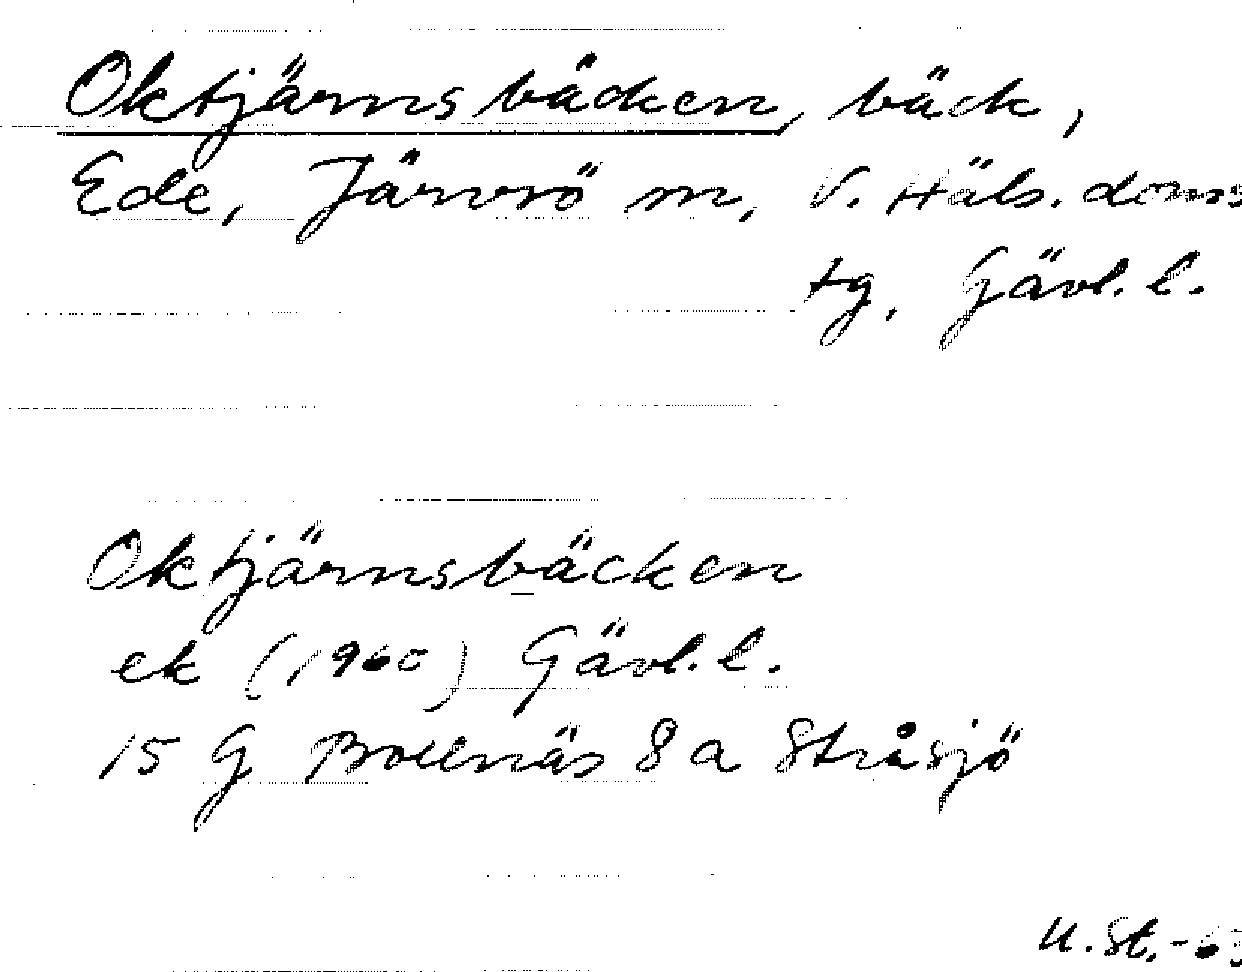 Oktjärnsbäcken, bäck,
Ede, Järvsö sn, V. Häls. doms
tg, Gävl. l.
Oktjärnsbäcken
ek (1960) Gävl. l.
15 G Bollnäs 8 a Stråsjö
U. St. -63